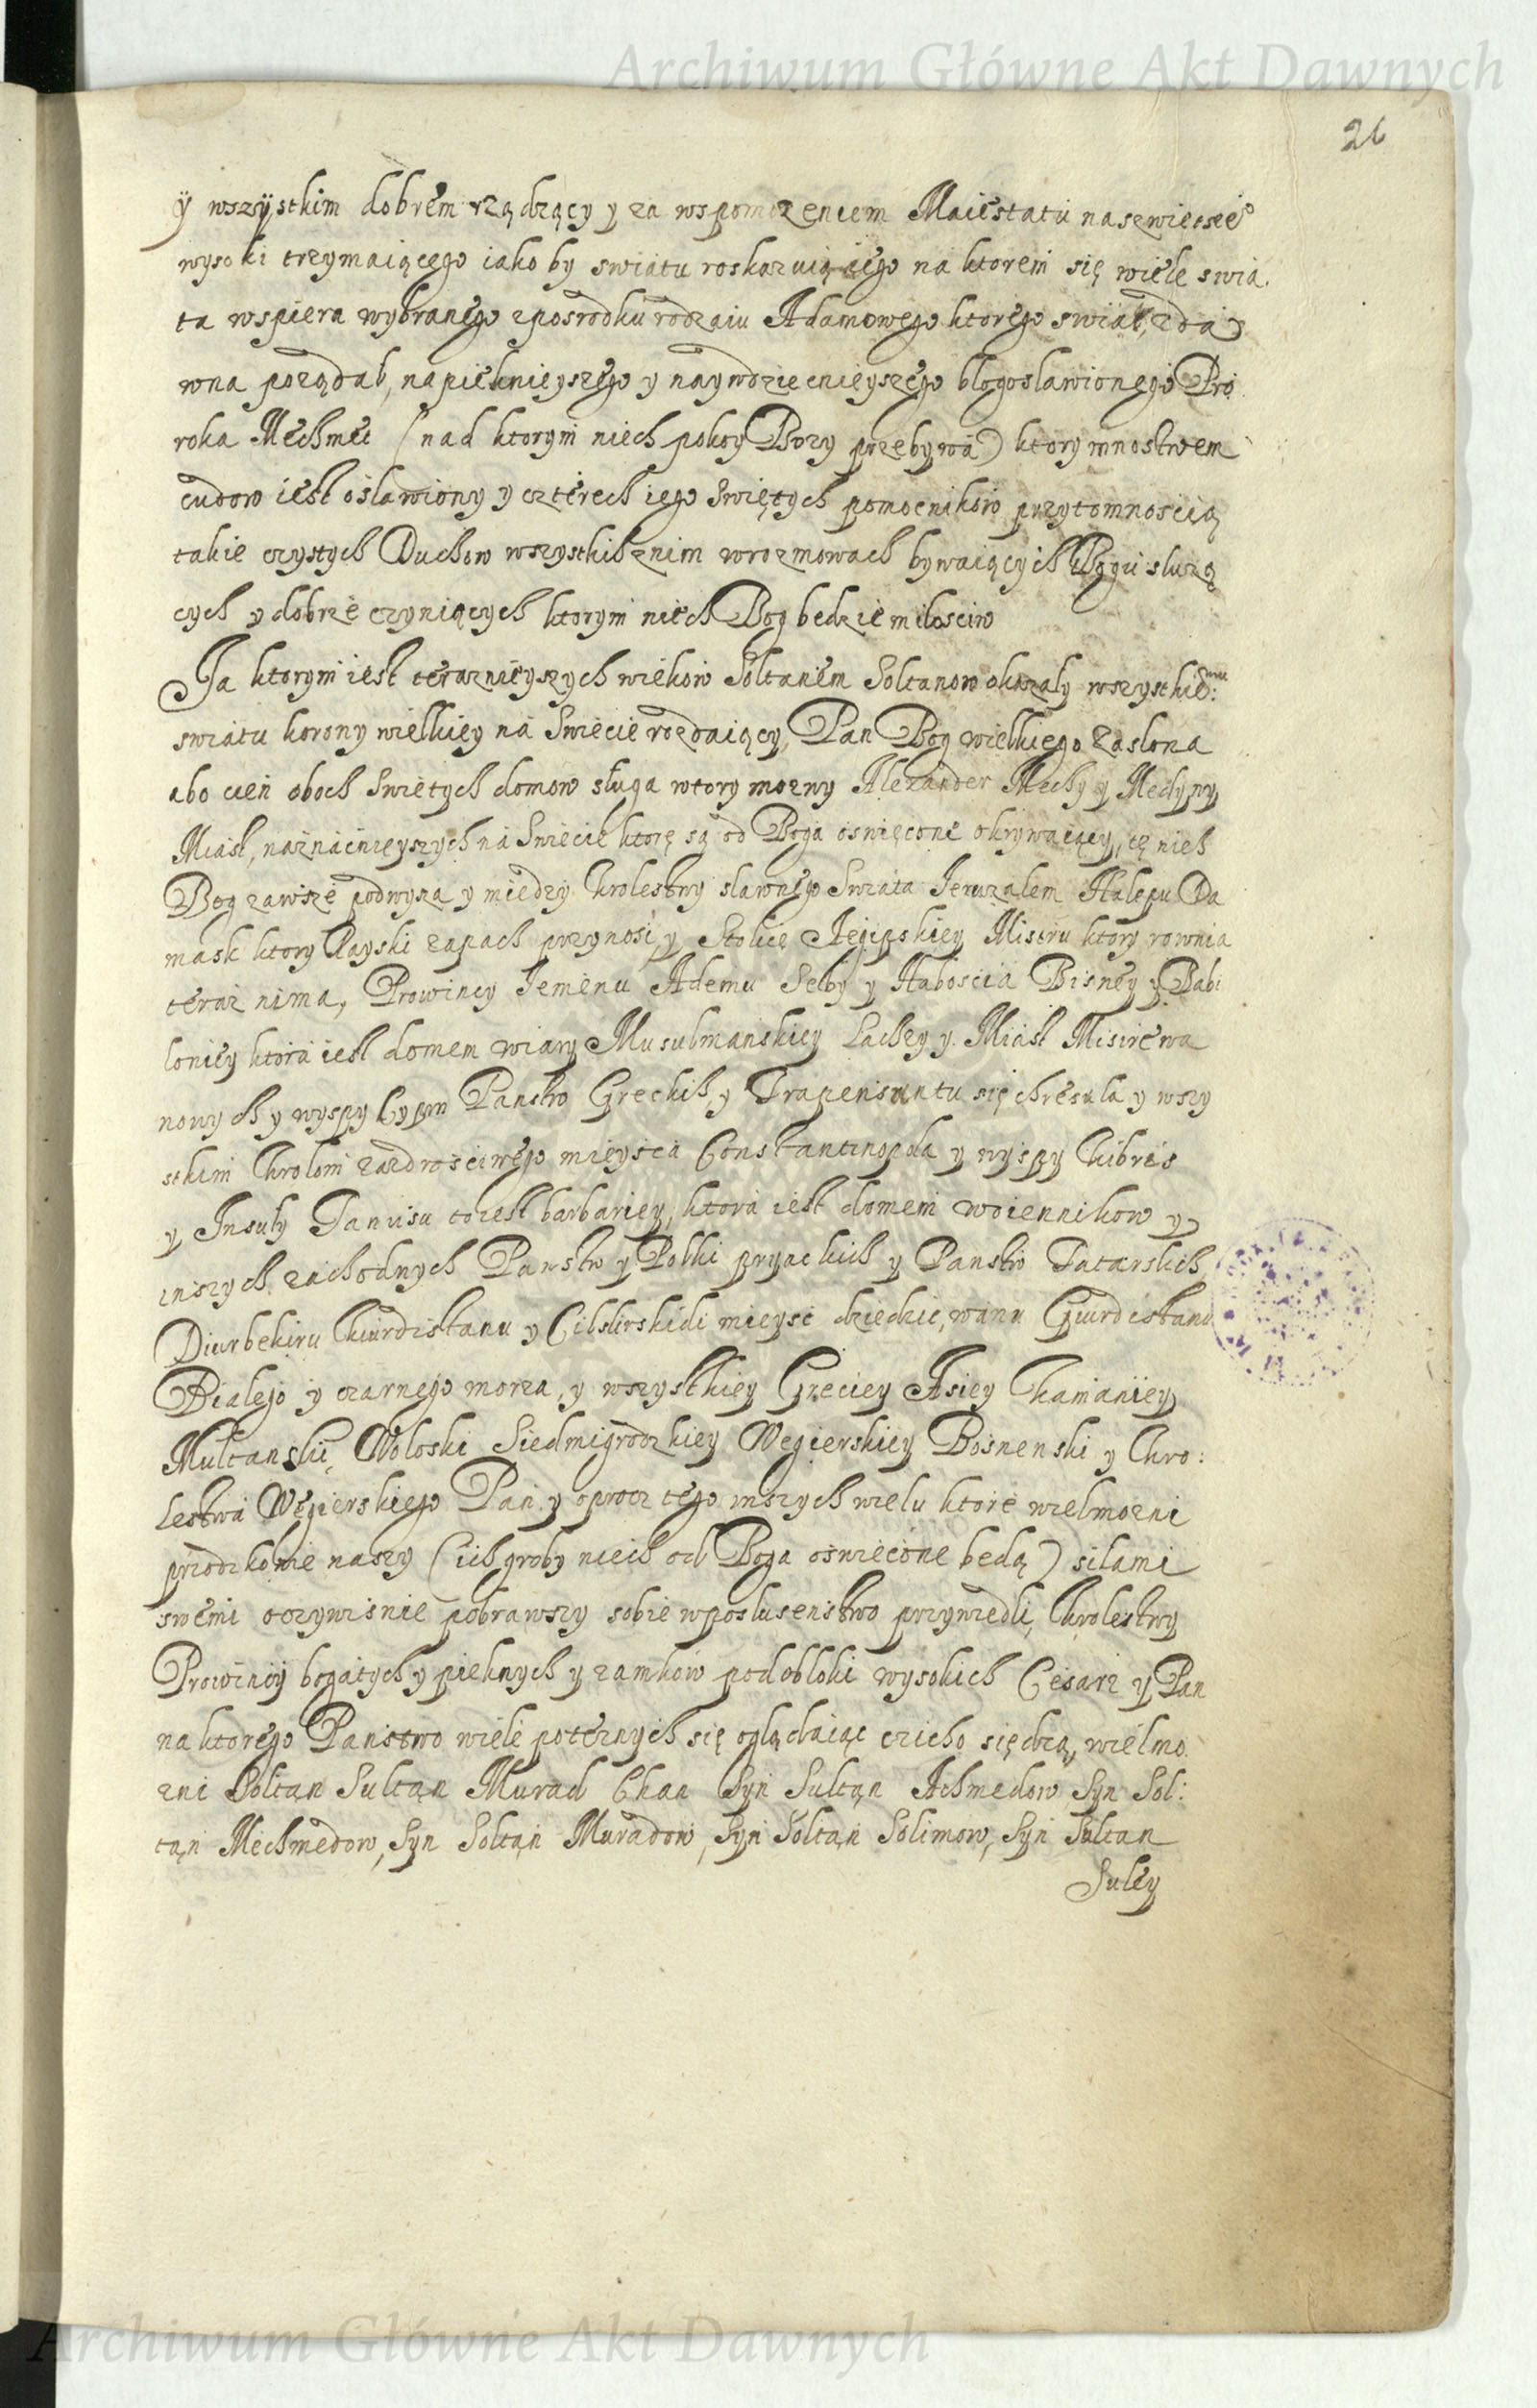 Archiwum Główne Akt Dawnych
26
ÿ wszÿstkim dobrem rządzący y za wspomożeniem Maiestatu naszwietsze°
wysoki trzymaiącego iako by swiatu roskazuiącego na ktorem się wiele swia
ta wspiera wybranego zposrodku rodzaiu Adamowego ktorego swiat, zda
wna pożądał, napiekniejszego y naywdziecznieyszego błogosławionego Pro
roka Mechmet (nad ktorym niech pokoy Bozy przebywa) ktory mnostwem
cudow iest oslawiony y czterech iego Swiętych pomocnikow przytomnoscią
takie czystych Duchow wszystkich znim wrozmowach bywaiących Bogu słuzą
cych y dobrze czyniących ktorym niech Bog bedzie miłosciw
Ja ktorym iest teraznieyszych wiekow Soltanem Soltanow okazały wszystkie:mu
swiatu korony wielkiey na Swiecie rozdaiący, Pan Bog wielkiego zasłona
abo cien oboch Swietych domow sługa wtory mozny Alexander Mechy y Medyny
Miast, naznacnieyszych na Swiecie ktore są od Boga oswięcone okrywaiący, tę niech
Bog zawsze podwyza y miedzy krolestwy sławnego Swiata Jeruzalem Halepu Da
mask ktory Rayski zapach przynosi, y Stolicę Aegipskiey Misiru ktory rownia
teraz nima, Prowincy Jemenu Ademu Selby y Haboscia Bisney y Babi
loniey ktora iest domem wiary Musulmanskiey Lachzy y Miast Misirewa
nowych y wyspy Cypru Panstw Greckich, y Trapensuntu się chresula y wszy
stkim krolom zazdrosciwego mieysca Constantinopola y wyspy Kibris
y Insuły Tanusu toiest barbariey, ktora iest domem woiennikow y
inszych zachodnych Panstw y Polki pryackich y Panstw Tatarskich
Diurbekiru Kiurdistanu y mieysc dziedzic, wanu Giurdistanu
Białego y czarnego morza, y wszystkiey Greciey Asiey Chamaniey
Multanski, Wołoski Siedmigrodzkiey Wegierskiey Bosnenski y Kro:
lestwa Węgierskiego Pan y oprocz tego inszych wielu ktore wielmozni
przodkowie naszy (ich groby niech od Boga oswiecone będą) siłami
swemi oczywisnie pobrawszy sobie wposłusenstwo przywiedli, krolestwy
Prowincy bogatych y pieknych y zamkow pod obloki wysokich Cesarz y Pan
na ktorego Panstwo wiele poteznych się oglądaiąc czicho siędzą, wielmo
zni Soltan Sultan Murad Chan Syn Sultan Achmedow Syn Sol:
tan Mechmedow, Syn Soltan Muradow, Syn Soltan Solimow, Syn Sultan
Suley
Archiwum Główne Akt Dawnych